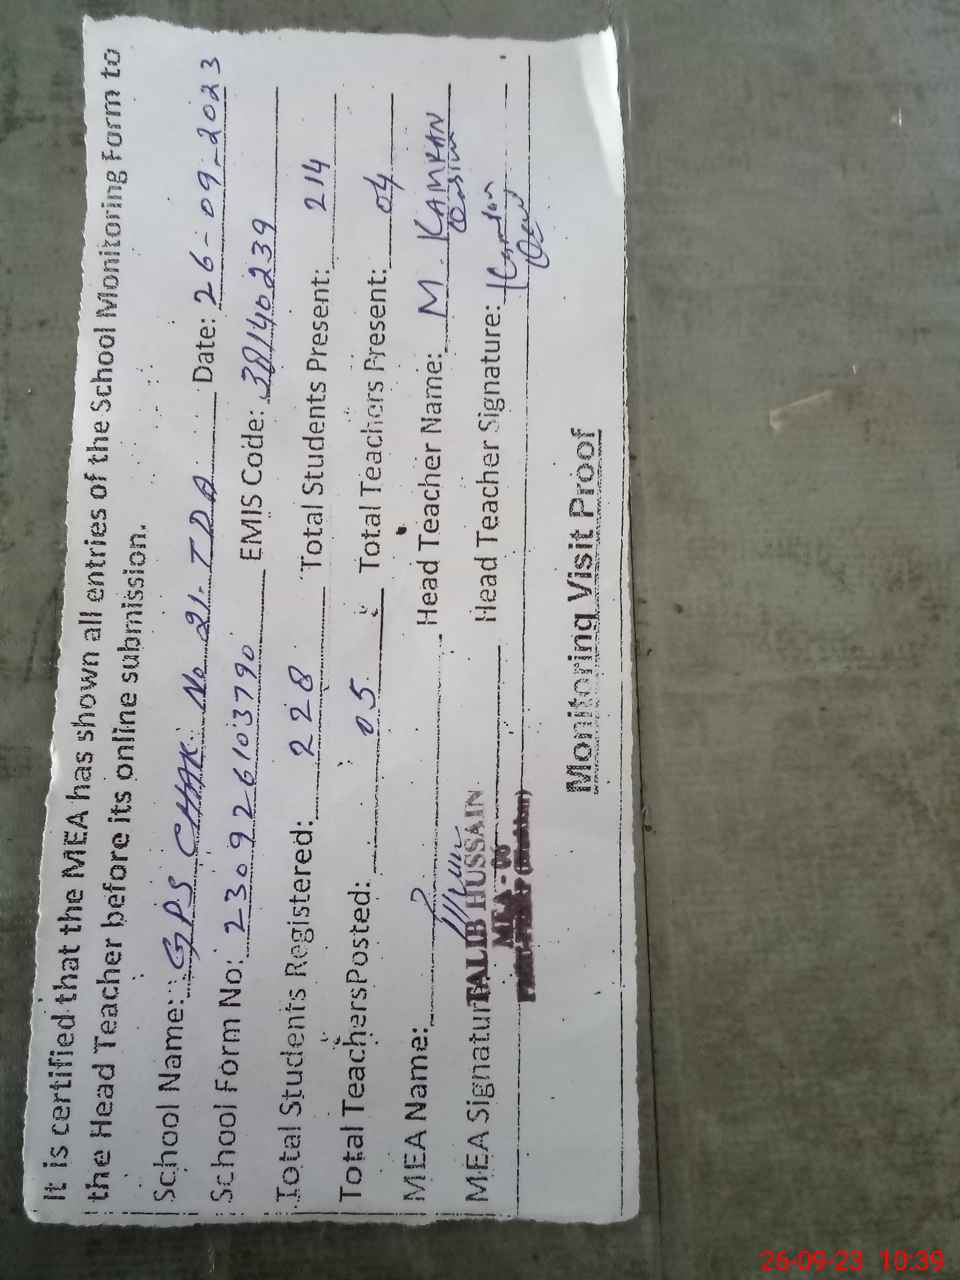 It is certified that the MEA has shown all entries of the School Monitoring Form to
the Head Teacher before its online submission.
School Name: GPS CHAK No 21-TDA Date: 26-09-2023
School Form No: 230926103790 EMIS Code: 38140239
Total Students Registered: 228 Total Students Present: 214
Total Teachers Posted: 05 Total Teachers Present: 04
MEA Name: Head Teacher Name: M. KAMRAN
MEA Signature: Head Teacher Signature:
TALIB HUSSAIN
MEA - 06
Monitoring Visit Proof
26-09-23 10:39